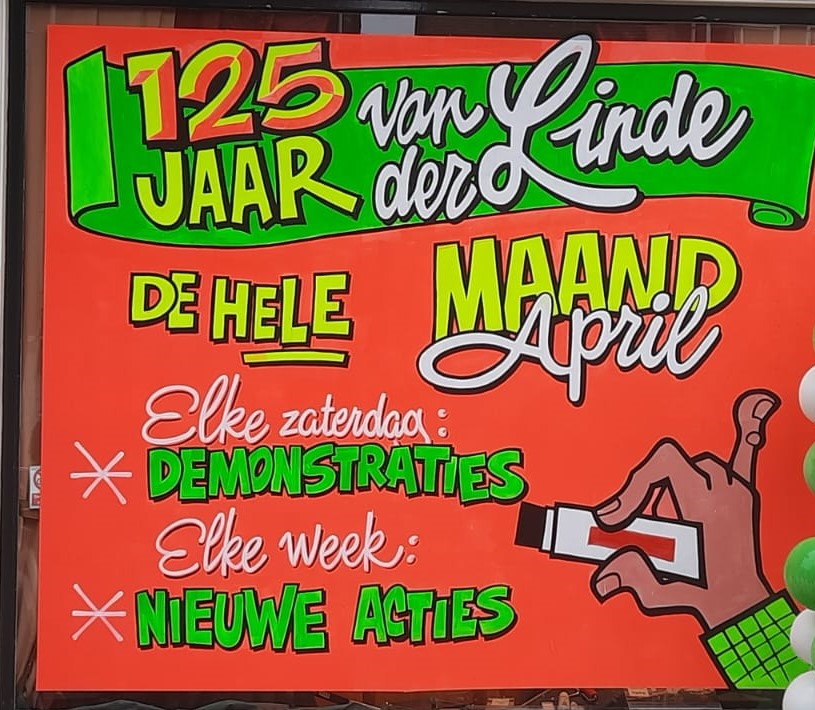 125 van der Linde
JAAR
DE HELE MAAND
April
Elke zaterdag:
* DEMONSTRATIES
Elke week:
* NIEUWE ACTIES